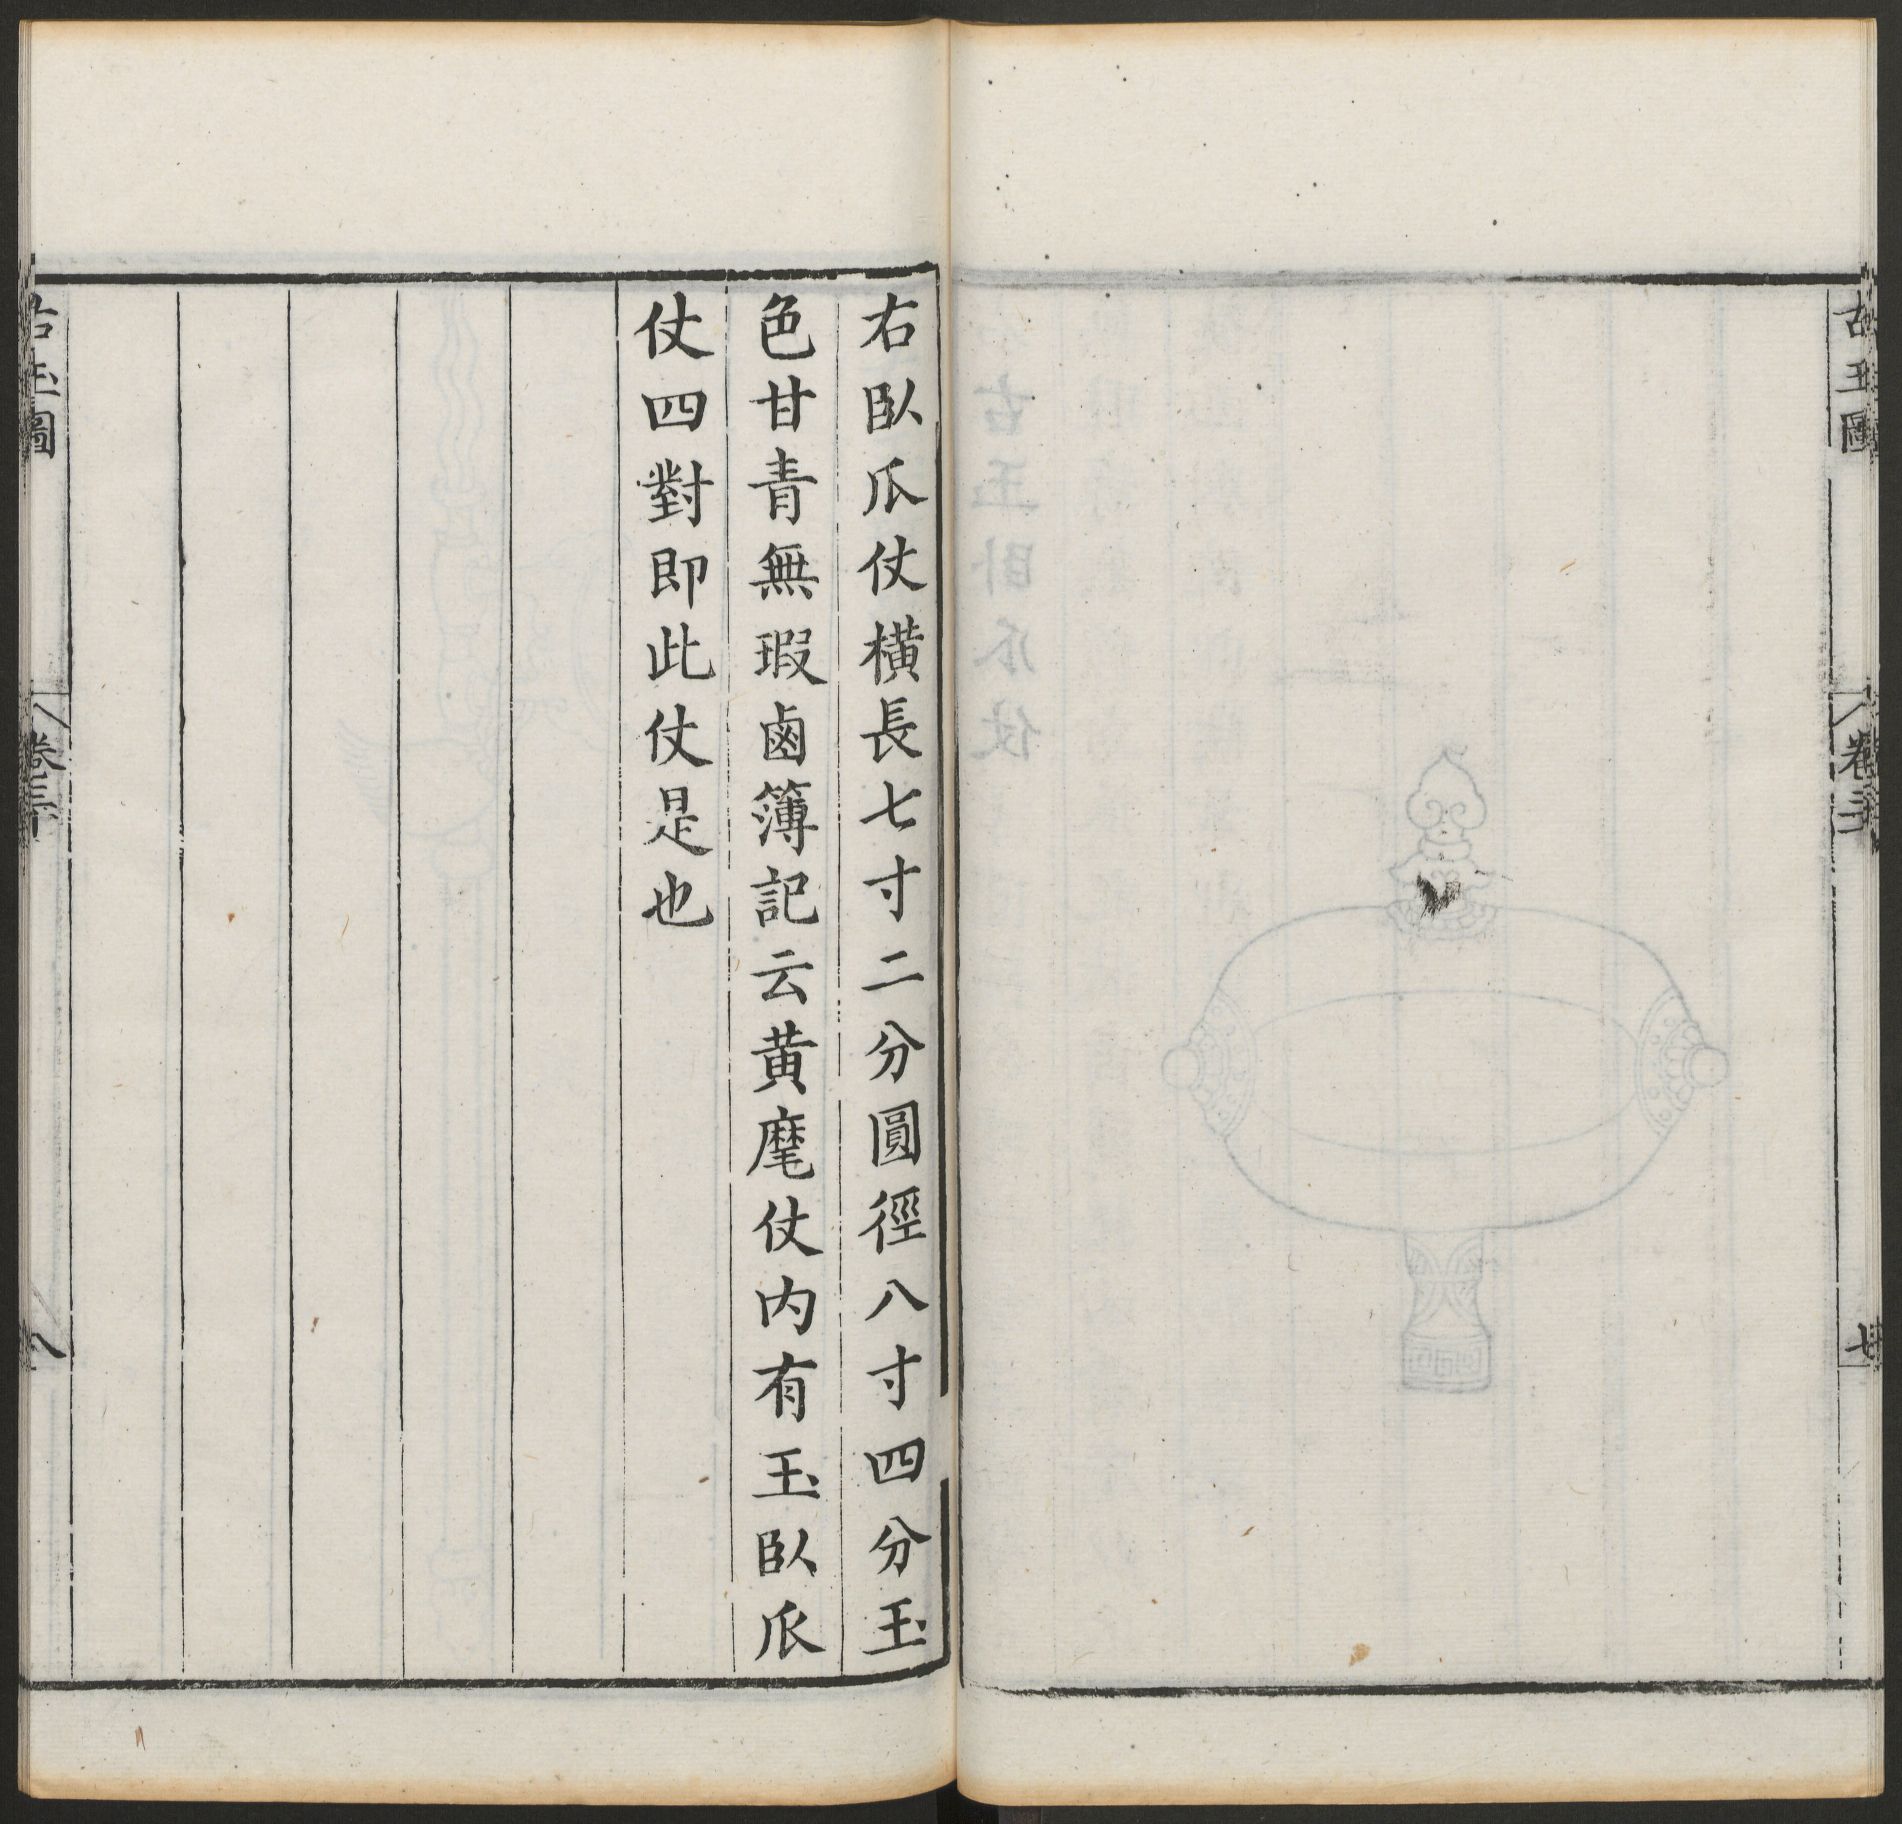 古玉圖
卷三
七
右臥瓜仗橫長七寸二分圓徑八寸四分玉
色甘青無瑕鹵簿記云黃麾仗内有玉臥瓜
仗四對即此仗是也
古玉圖
卷三
八